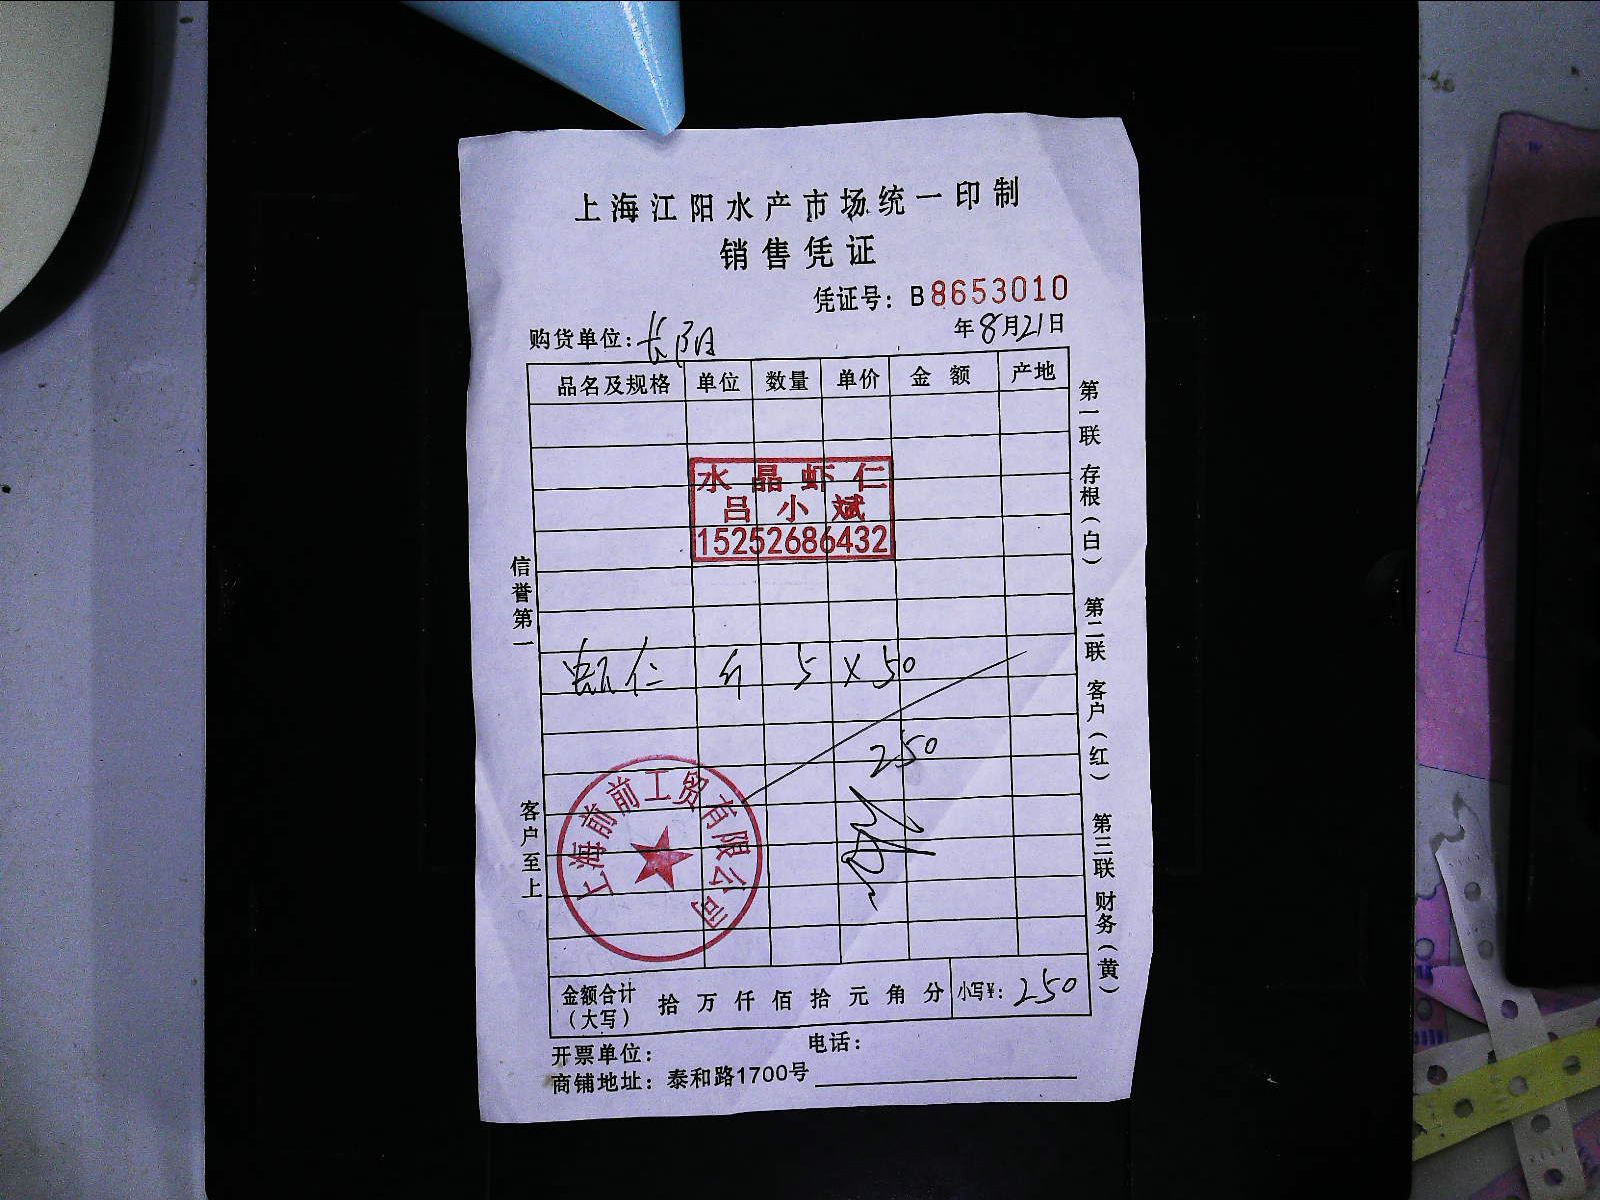 上海江阳水产市场统一印制
销售凭证
凭证号：B8653010
购货单位：长阳 年8月21日
品名及规格 单位 数量 单价 金额 产地
水晶虾仁
吕小斌
15252686432
虾仁 斤 5 x 50
250
上海前前工贸有限公司
金额合计（大写） 拾万仟佰拾元角分 小写¥：250
开票单位： 电话：
商铺地址：泰和路1700号
信誉第一 客户至上
第一联 存根（白） 第二联 客户（红） 第三联 财务（黄）